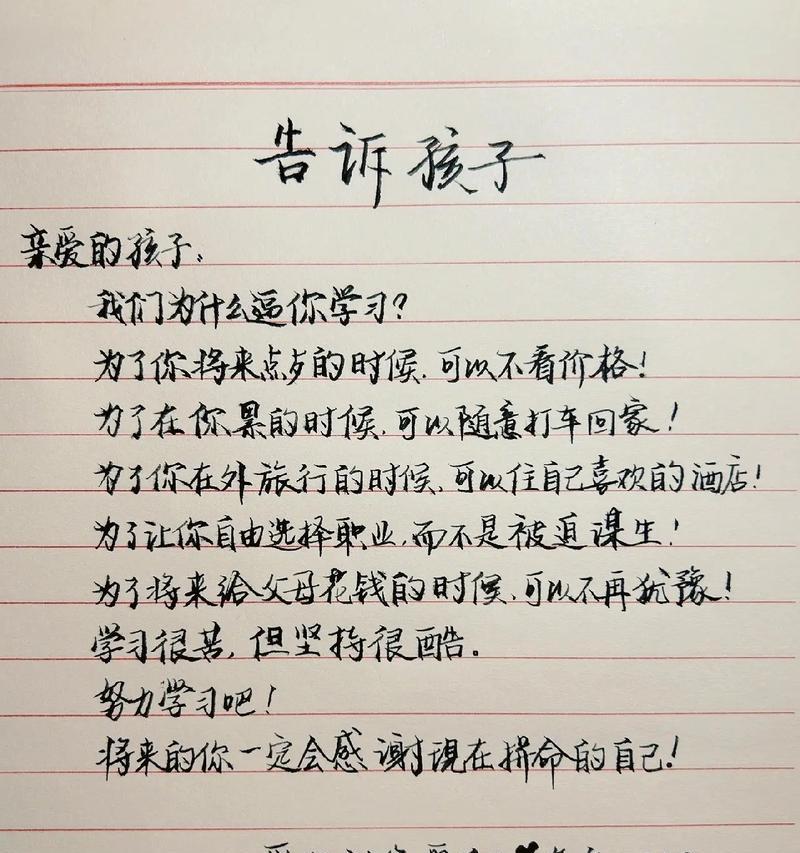 告诉孩子
亲爱的孩子:
我们为什么逼你学习?
为了你将来点歺的时候,可以不看价格!
为了在你累的时候,可以随意打车回家!
为了你在外旅行的时候,可以住自己喜欢的酒店!
为了让你自由选择职业,而不是被迫谋生!
为了将来给父母花钱的时候,可以不再犹豫!
学习很苦,但坚持很酷。
努力学习吧!
将来的你一定会感谢现在拼命的自己!